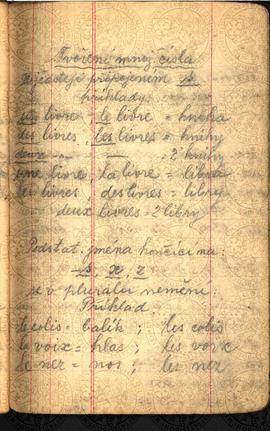 Tvoření množ. čísla
nejčastěji připojením s
příklady:
un livre, le livre = kniha
des livres, les livres = knihy
deux — — = 2 knihy
une livre, la livre = libra
les livres, des livres = libry
deux livres = 2 libry
Podstat. jména končící na:
-s, x, z
se v plurálu nemění.
Příklad
le colis = balík ; les colis
la voix = hlas ; les voix
le nez = nos ; les nez